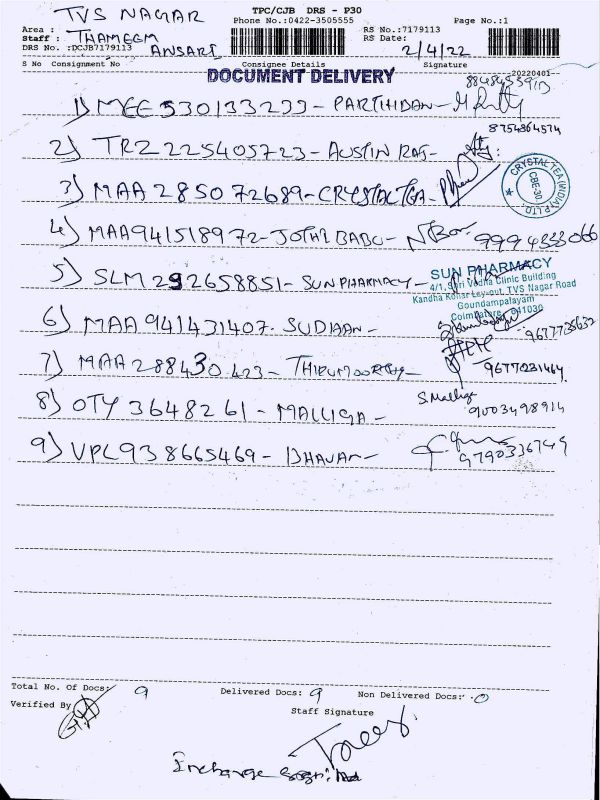 TPC/CJB DRS - P30
TVS NAGAR
Phone No.:0422-3505555
Page No.:1
Area :
RS No.:7179113
Staff : THAMEEM ANSARI
RS Date:
DRS No. :DCJB7179113
2/4/22
S No Consignment No Consignee Details Signature
20220401
DOCUMENT DELIVERY
1) MEE 530133233 - PARTHIBAN -
8754864574
2) TRZ 225405723 - AUSTIN RAJ -
3) MAA 285072689 - CRYSTAL TEA -
CRYSTAL TEA (INDIA) P LTD.
CBE-30.
4) MAA941518972 - JOTHI BABU - 9994333066
5) SLM 292658851 - SUN PHARMACY -
SUN PHARMACY
4/1, Shri Vedha Clinic Building
Kandha Konar Lay-out, TVS Nagar Road
Goundampalayam
Coimbatore, 641030
6) MAA 941431407. SUDIAAN -
9677735632
7) MAA 288430423 - THIRUMOORTHY -
9677031464
8) OTY 3648261 - MALLIGA -
S. Malliga
9003498914
9) VPL938665469 - DHAVAN -
9790336749
Total No. Of Docs: 9 Delivered Docs: 9 Non Delivered Docs: 0
Verified By
Staff Signature
Incharge